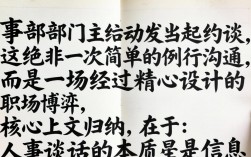 事部部门主结动发当起约谈，
这绝非一次简单的例行沟通，
而是一场经过精心设计的
职场博弈，
核心上文归纳，在于：
人事谈话的本质是是信息